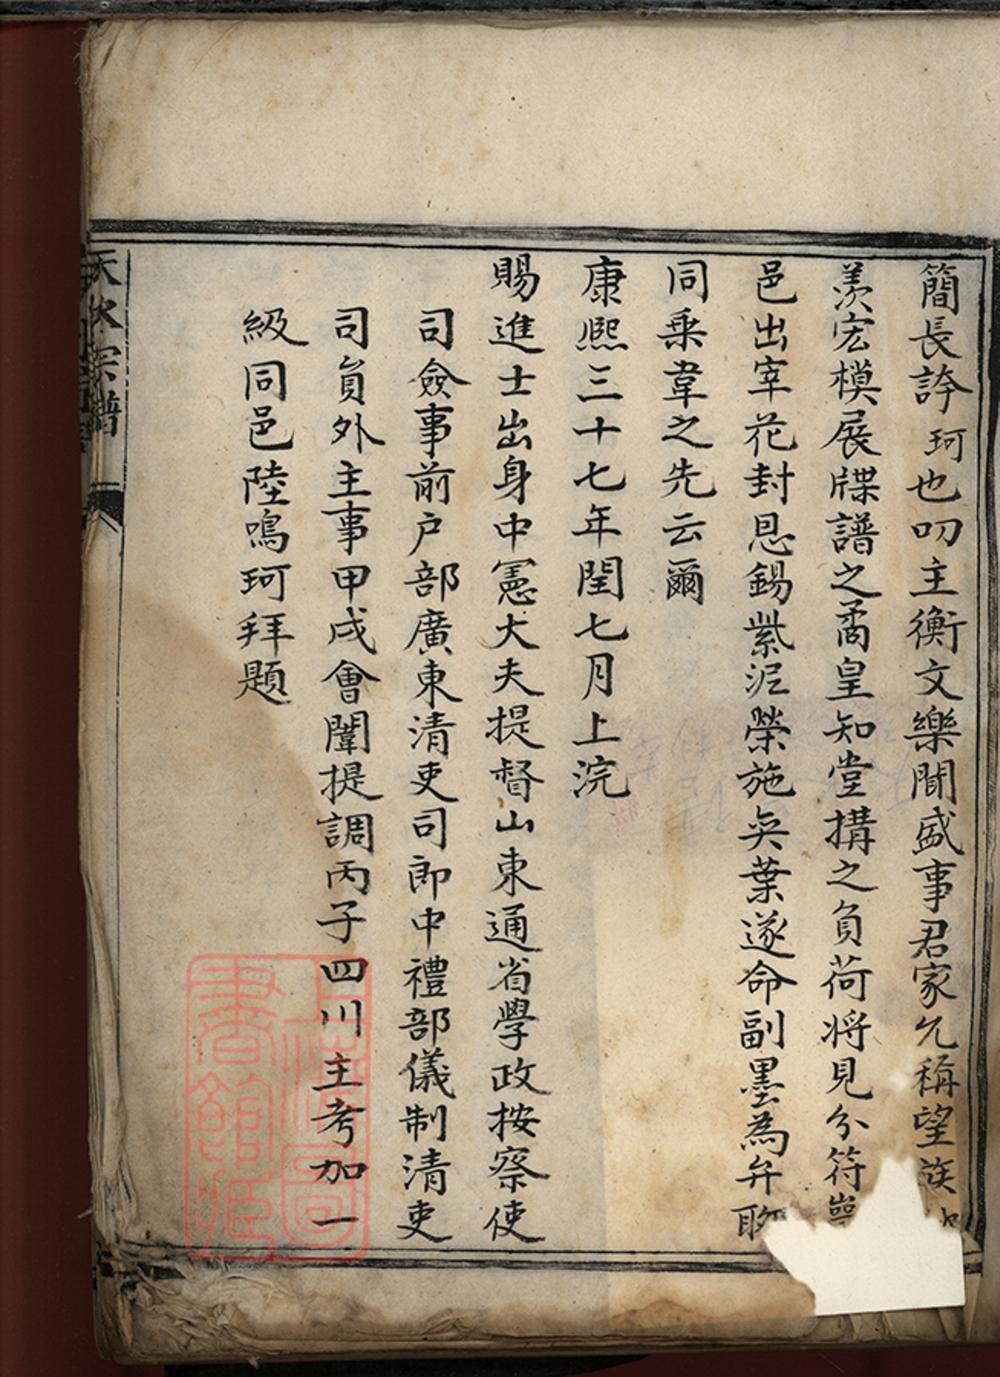 簡長誇珂也叨主衡文樂聞盛事君家久稱望族
羨宏模展牒譜之矞皇知堂搆之負荷将見分符
邑出宰花封恩錫紫泥榮施奕葉遂命副墨為弁
同乘韋之先云爾
康熙三十七年閏七月上浣
賜進士出身中憲大夫提督山東通省學政按察使
司僉事前户部廣東清吏司郎中禮部儀制清吏
司員外主事甲戌會闈提調丙子四川主考加一
級同邑陸鳴珂拜題
天水宗譜
上海圖書館藏